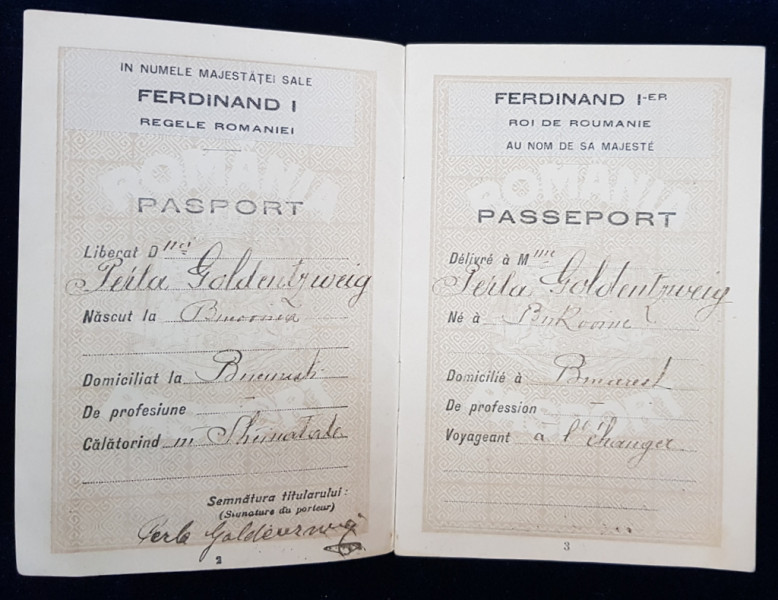 IN NUMELE MAJESTĂȚEI SALE
FERDINAND I
REGELE ROMANIEI
ROMÂNIA
PASPORT
Liberat D nei
Perla Goldentzweig
Născut la Bucovina
Domiciliat la Bucuresti
De profesiune —
Călătorind in Strinatate
PASPORT
Semnătura titularului:
(Signature du porteur)
Perla Goldenzweig
2
FERDINAND I-ER
ROI DE ROUMANIE
AU NOM DE SA MAJESTÉ
ROMÂNIA
PASSEPORT
Délivré à M me
Perla Goldentzweig
Né à Bukovine
Domicilié à Bucarest
De profession —
Voyageant a l'étranger
PASPORT
3